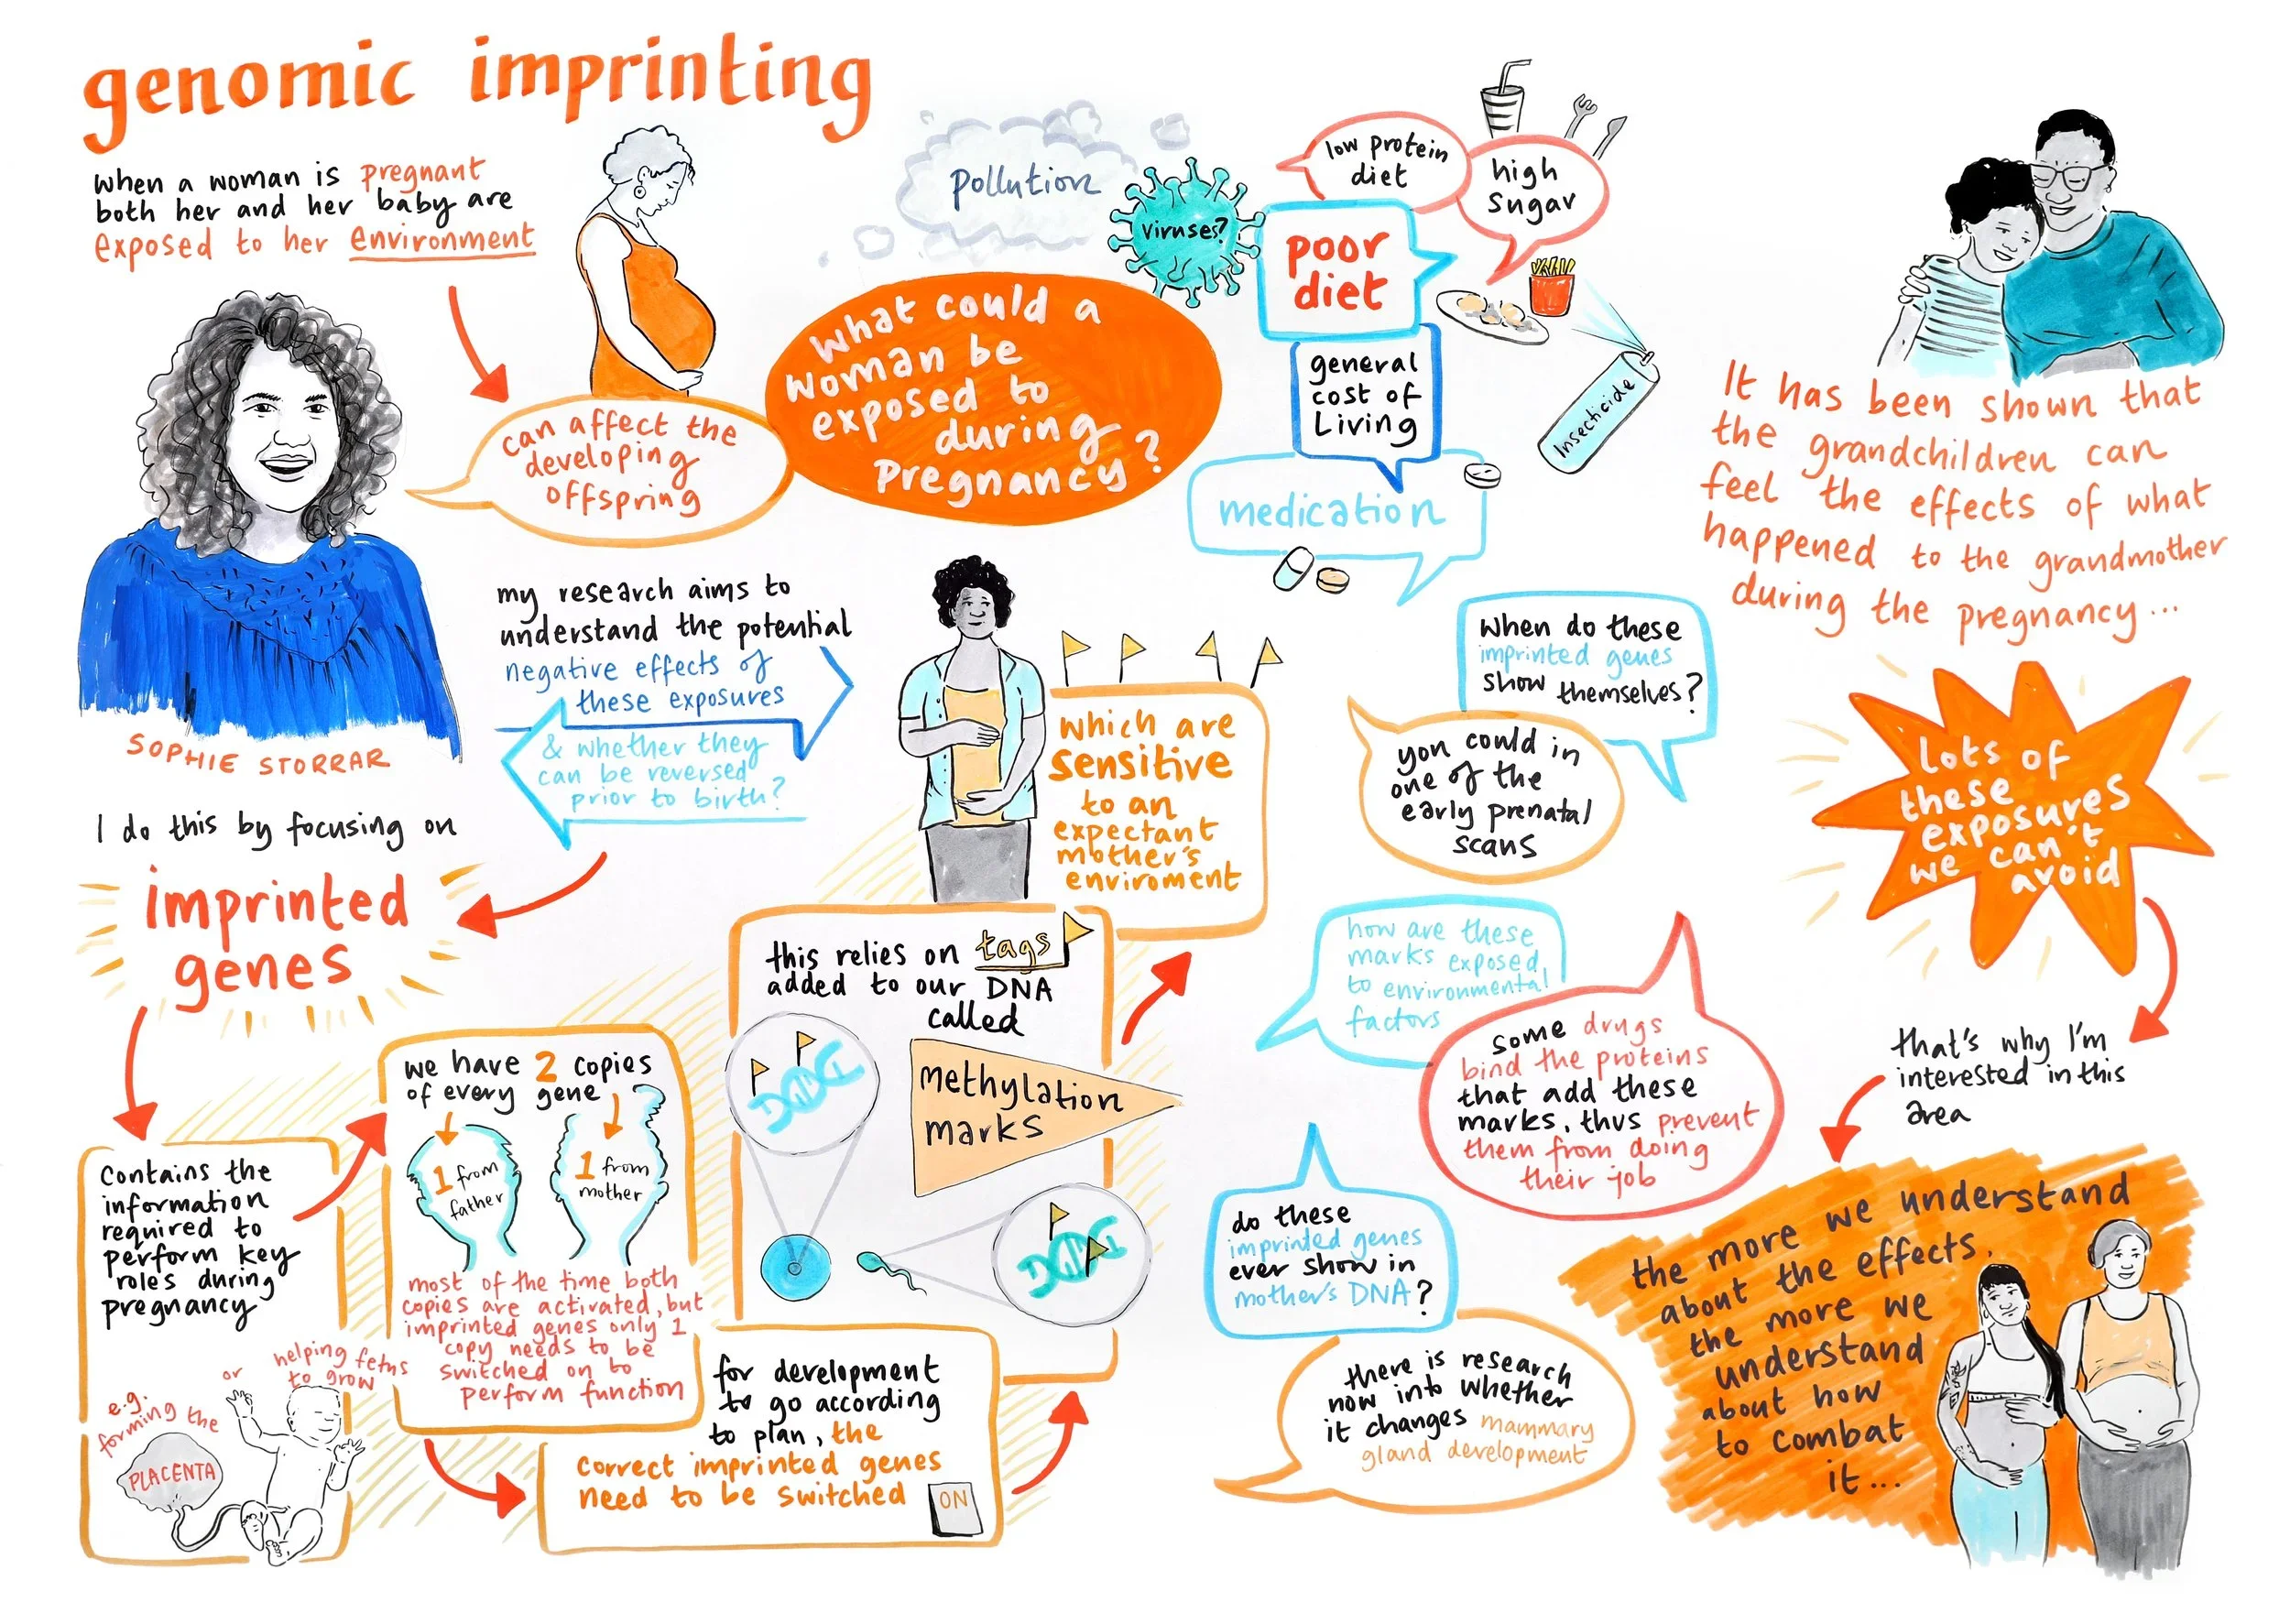 genomic imprinting
when a woman is pregnant
both her and her baby are
exposed to her environment
can affect the
developing
offspring
SOPHIE STORRAR
my research aims to
understand the potential
negative effects of
these exposures
& whether they
can be reversed
prior to birth?
I do this by focusing on
imprinted
genes
contains the
information
required to
perform key
roles during
pregnancy
e.g.
forming the
PLACENTA
or
helping fetus
to grow
we have 2 copies
of every gene
1 from
father
1 from
mother
most of the time both
copies are activated, but
imprinted genes only 1
copy needs to be
switched on to
perform function
for development
to go according
to plan, the
correct imprinted genes
need to be switched
ON
this relies on tags
added to our DNA
called
methylation
marks
which are
sensitive
to an
expectant
mother's
enviroment
what could a
woman be
exposed to
during
pregnancy?
pollution
viruses?
poor
diet
low protein
diet
high
sugar
general
cost of
Living
Insecticide
medication
when do these
imprinted genes
show themselves?
you could in
one of the
early prenatal
scans
how are these
marks exposed
to environmental
factors
some drugs
bind the proteins
that add these
marks, thus prevent
them from doing
their job
do these
imprinted genes
ever show in
mother's DNA?
there is research
now into whether
it changes mammary
gland development
It has been shown that
the grandchildren can
feel the effects of what
happened to the grandmother
during the pregnancy...
lots of
these
exposures
we can't
avoid
that's why I'm
interested in this
area
the more we understand
about the effects,
the more we
understand
about how
to combat
it...